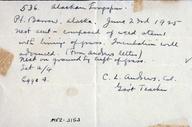 536. Alaskan Longspur.
Pt. Barrow, Alaska. June 23rd 1925
Nest and - composed of weed stems
with lining of grass. Incubation well
advanced. (From Andrews letter)
Nest on ground by tuft of grass.
Set a/4
Eggs 4. C. L. Andrews, Col.
Govt Teacher
MVZ-3163